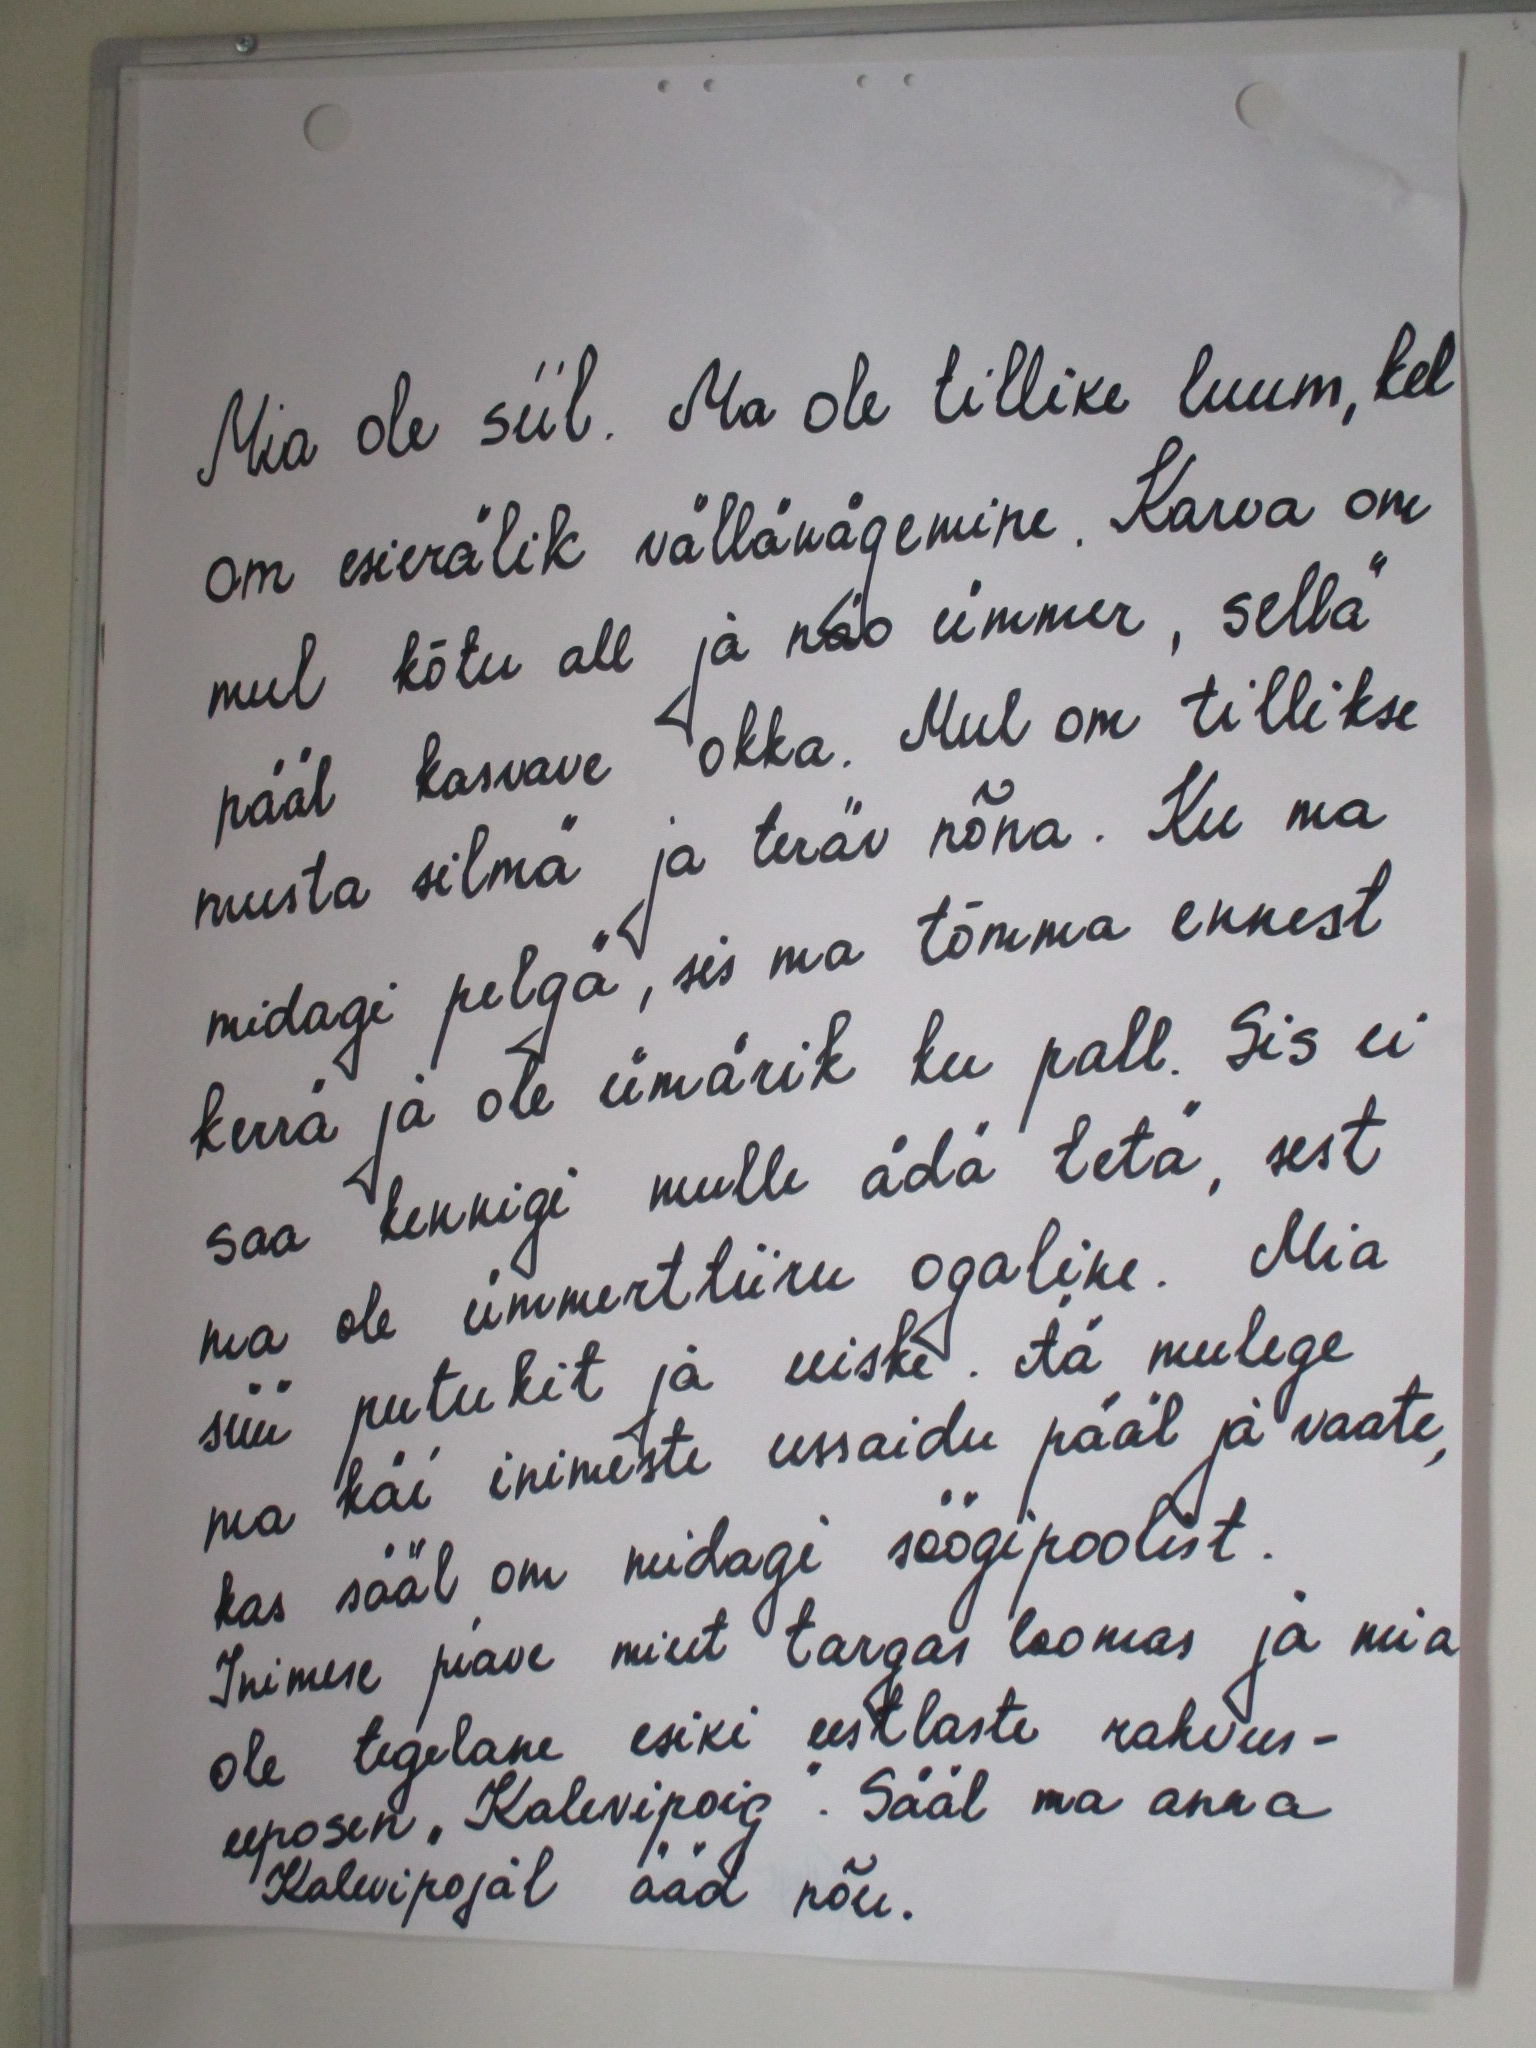 Mia ole siil. Ma ole tillike luum, kel
om esierälik vällänägemine. Karva om
mul kõtu all ja näo ümmer, sellä
pääl kasvave okka. Mul om tillikse
musta silmä ja teräv nõna. Ku ma
midagi pelgä, sis ma tõmma ennest
kerrä ja ole ümärik ku pall. Sis ei
saa kennigi mulle ädä tetä, sest
ma ole ümmerttiiru ogaline. Mia
süü putukit ja uiske. Ää mulege
ma käi inimeste ussaidu pääl ja vaate,
kas sääl om midagi söögipoolist.
Inimese piave miut targas loomas ja mia
ole tegelane esiki eestlaste rahvus-
eeposen „Kalevipoig". Sääl ma anna
Kalevipojäl ääd nõu.